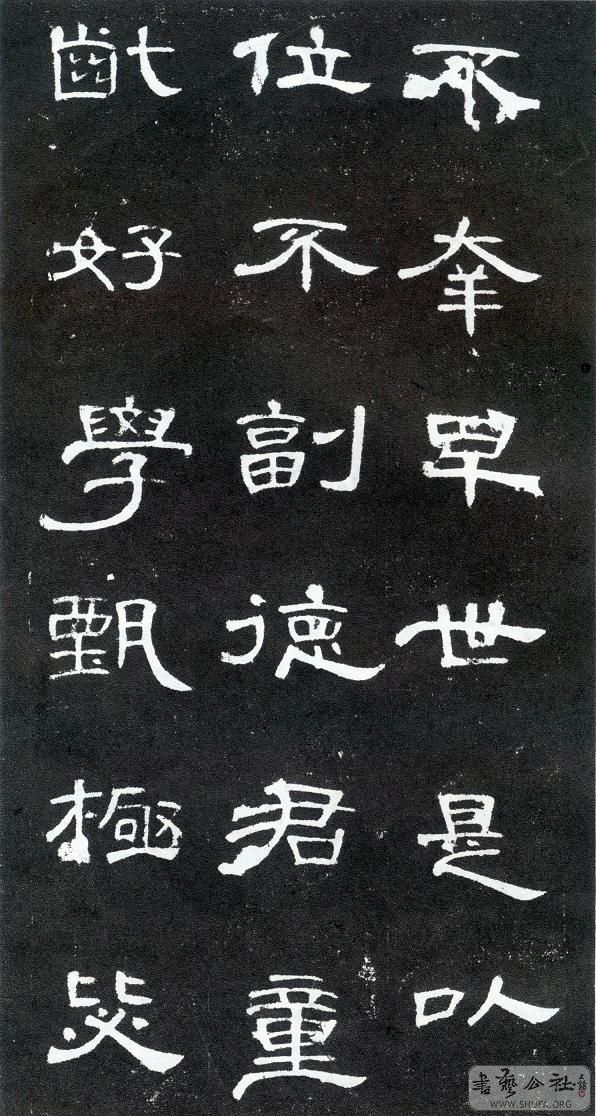 不幸早世是以
位不副德君童
齔好學甄極毖
書藝公社
WWW.SHUFA.ORG